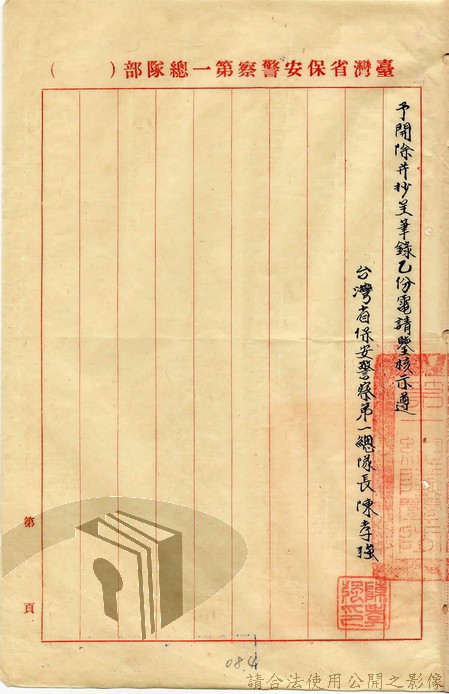 臺灣省保安警察第一總隊部（　　）
予開除并抄呈筆錄乙份電請鑒核示遵
台灣省保安警察第一總隊長陳孝強
陳孝強印
第　頁
084
請合法使用公開之影像